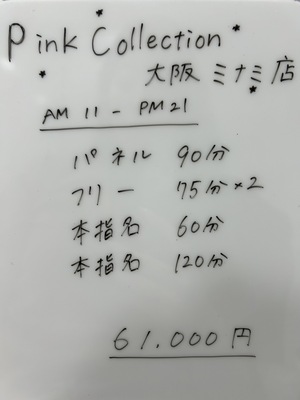 Pink Collection
大阪ミナミ店
AM 11 - PM 21
パネル 90分
フリー 75分×2
本指名 60分
本指名 120分
61.000円